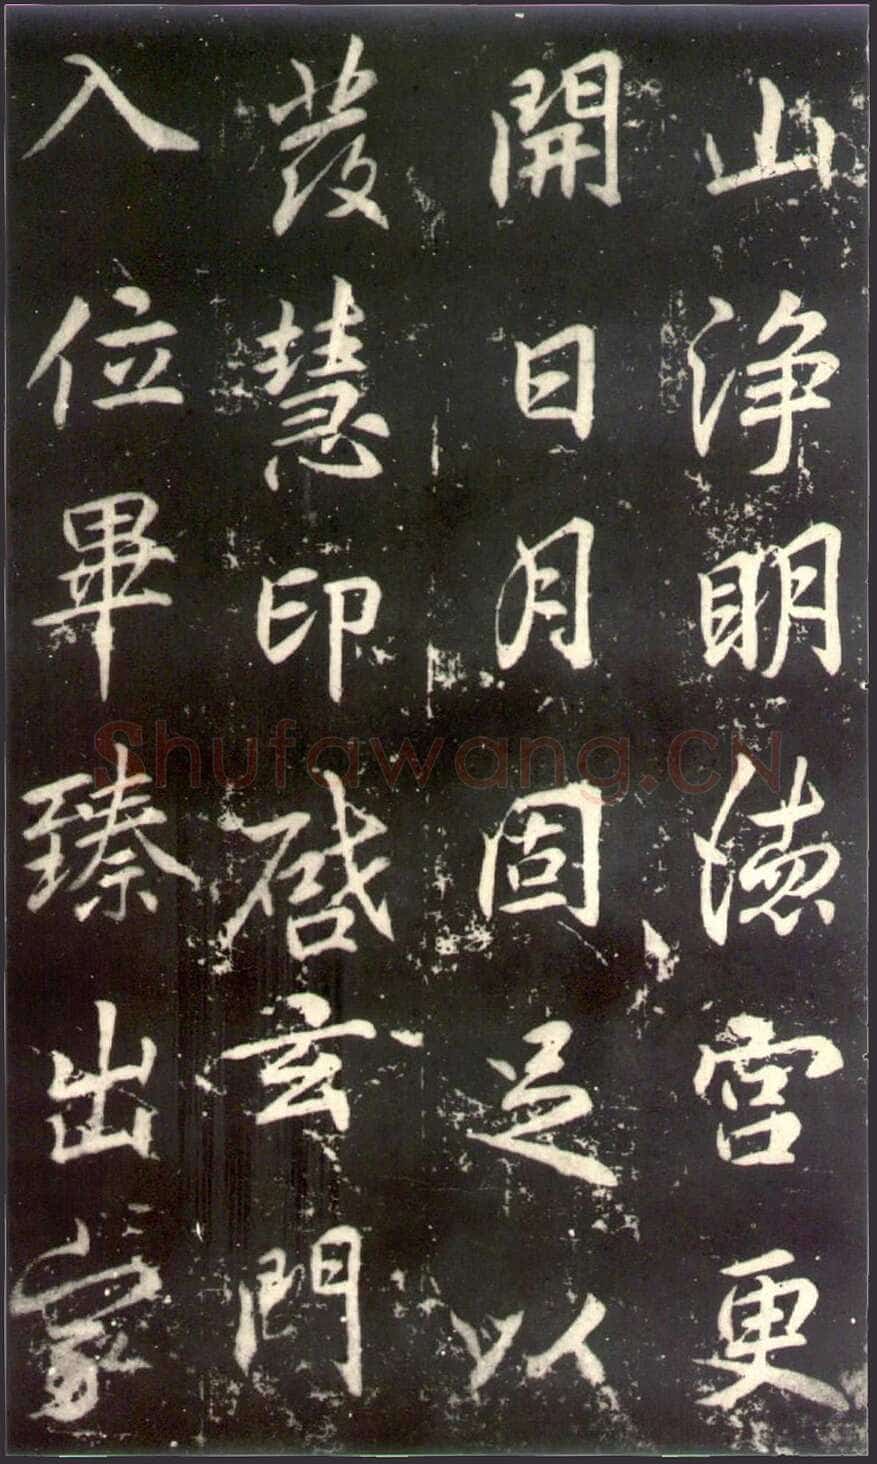 山淨明德宮更
開日月固足以
發慧印啓玄門
入位畢臻出家
Shufawang.CN